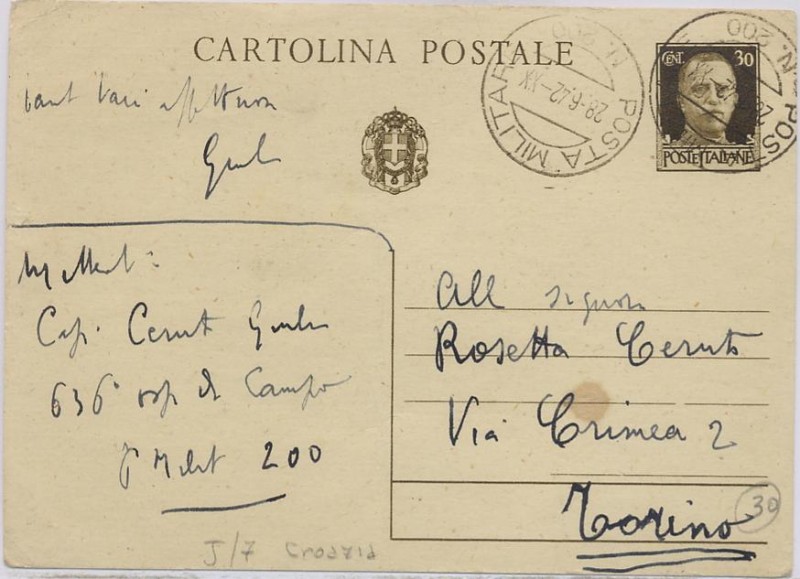 CARTOLINA POSTALE
CENT. 30
POSTE ITALIANE
POSTA MILITARE N. 200
28-6-42-XX
POSTA MILITARE N. 200
tanti baci affettuosi
Giulio
Mittente:
Cap. Ceruti Giulio
636° osp. da Campo
P. Milit 200
All signora
Rosetta Ceruti
Via Crimea 2
Torino
30
J/7 Croazia